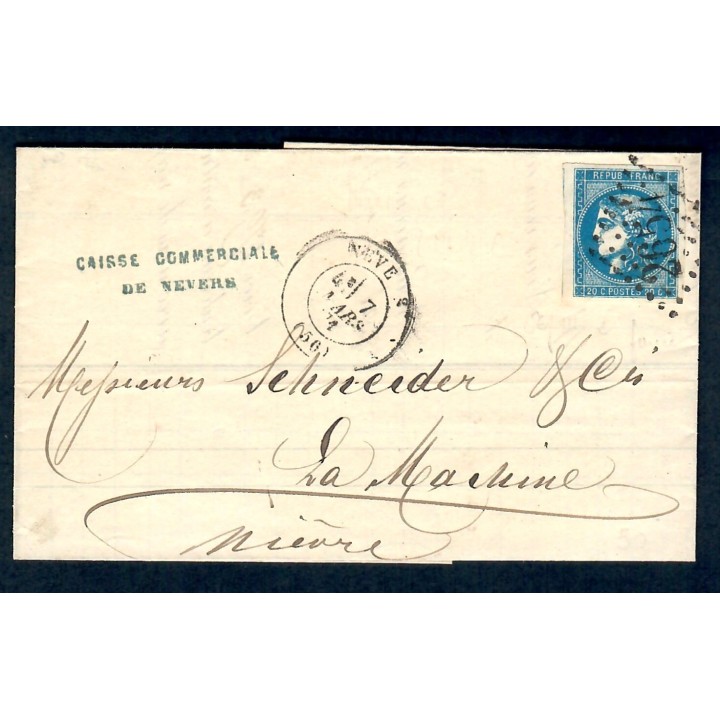 CAISSE COMMERCIALE
DE NEVERS
NEVE
7
MARS
71
(56)
REPUB FRANC
20 C POSTES 20 C
2654
Messieurs Schneider & Cie
La Machine
Nièvre